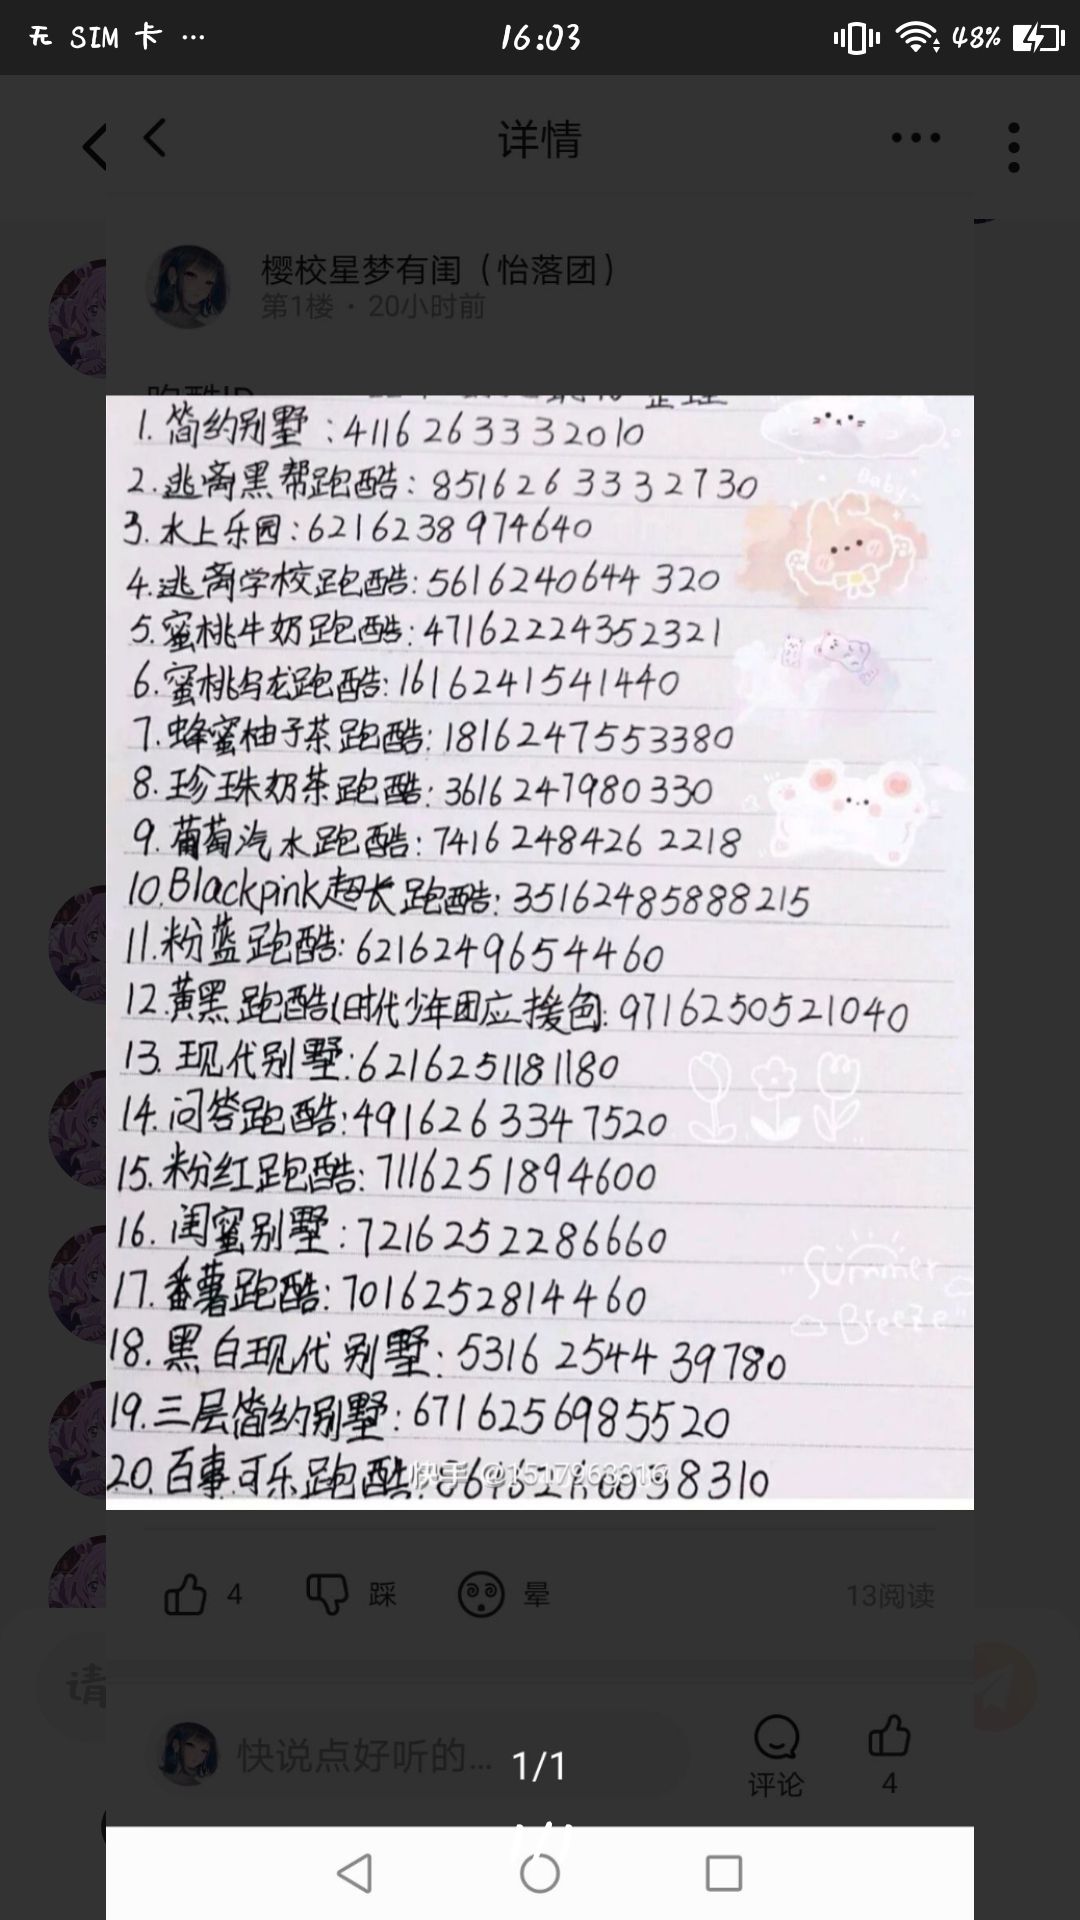 无 SIM 卡 ...
16:03
48%
详情
樱校星梦有闺（怡落团）
第1楼 · 20小时前
跑酷ID
整理
1.简约别墅:4116263332010
2.逃离黑帮跑酷:8516263332730
3.水上乐园:6216238974640
4.逃离学校跑酷:5616240644320
5.蜜桃牛奶跑酷:47162224352321
6.蜜桃乌龙跑酷:1616241541440
7.蜂蜜柚子茶跑酷:1816247553380
8.珍珠奶茶跑酷:3616247980330
9.葡萄汽水跑酷:74162484262218
10.Blackpink超长跑酷:35162485888215
11.粉蓝跑酷:6216249654460
12.黄黑跑酷(时代少年团应援色:9716250521040
13.现代别墅:6216251181180
14.问答跑酷:4916263347520
15.粉红跑酷:7116251894600
16.闺蜜别墅:7216252286660
17.番薯跑酷:7016252814460
18.黑白现代别墅:5316254439780
19.三层简约别墅:6716256985520
20.百事可乐跑酷:
8310
快手 @1517963316
Baby~
"Summer
Breeze"
4
踩
晕
13阅读
请
快说点好听的...
1/1
评论
4